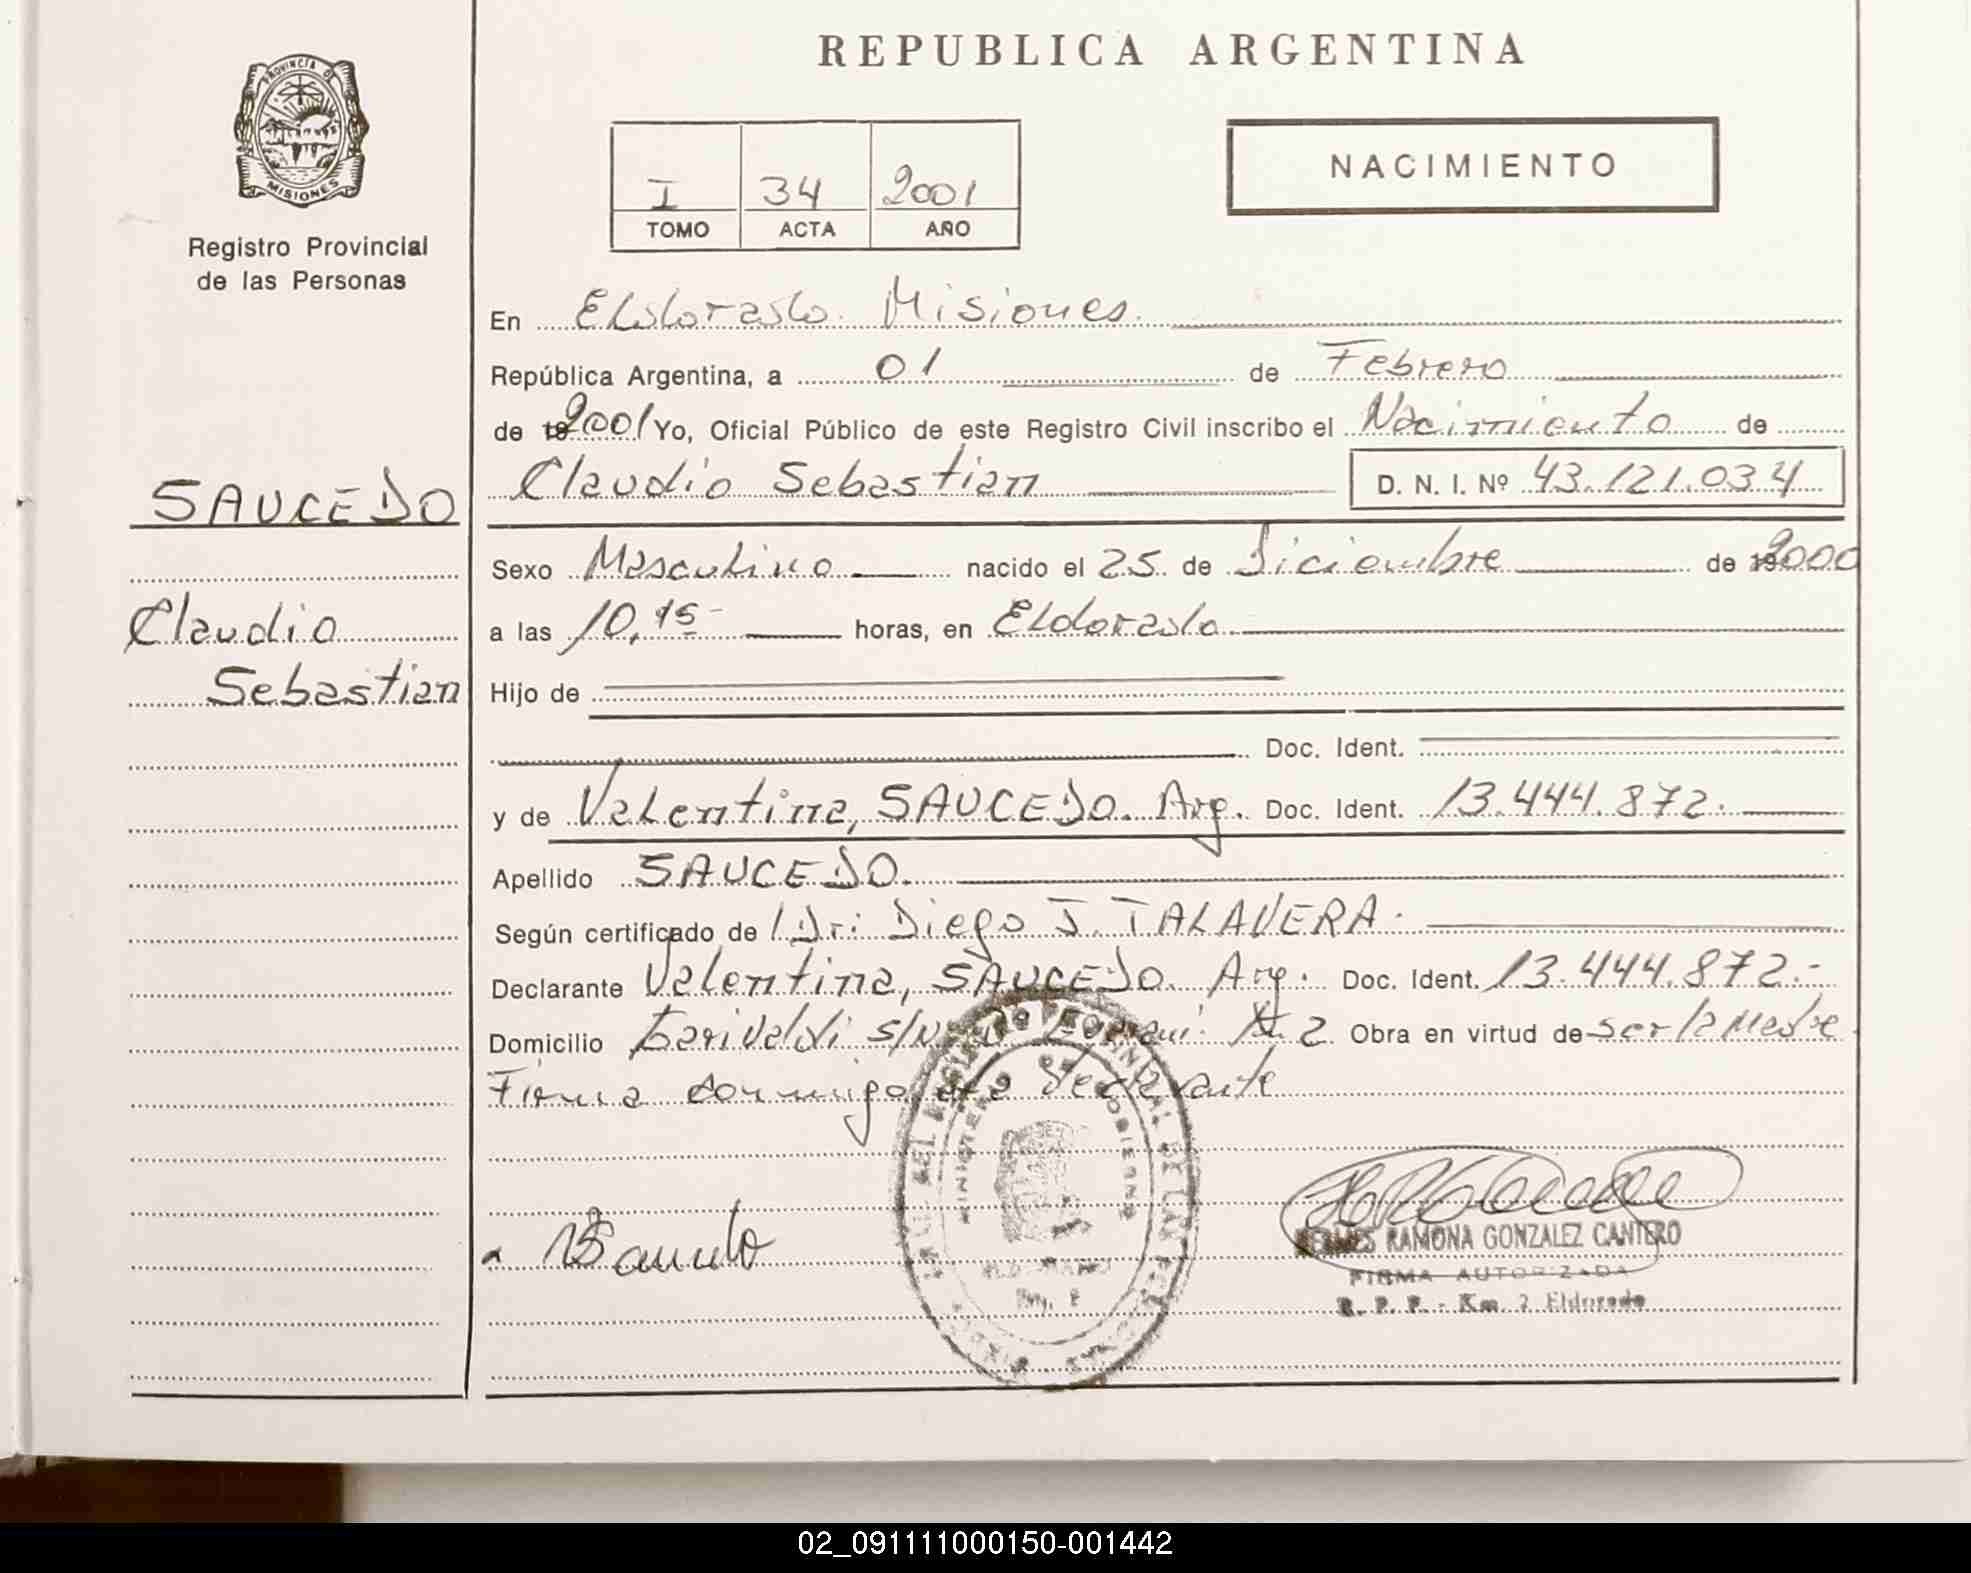 REPUBLICA ARGENTINA
PROVINCIA DE
MISIONES
Registro Provincial
de las Personas
I 34 2001
TOMO ACTA AÑO
NACIMIENTO
En Eldorado. Misiones.
República Argentina, a 01 de Febrero
de 192001 Yo, Oficial Público de este Registro Civil inscribo el Nacimiento de
Claudio Sebastian D. N. I. Nº 43.121.034
SAUCEDO
Claudio
Sebastian
Sexo Masculino nacido el 25 de Diciembre de 192000
a las 10,15- horas, en Eldorado.
Hijo de
Doc. Ident.
y de Valentina, SAUCEDO. Arg. Doc. Ident. 13.444.872.
Apellido SAUCEDO.
Según certificado de Dr: Diego J. TALAVERA.
Declarante Valentina, SAUCEDO. Arg. Doc. Ident. 13.444.872.-
Domicilio s/N 2 Obra en virtud de ser la Madre
Firma conmigo la declarante
MINISTERIO DE GOBIERNO
RAMONA GONZALEZ CANTERO
FIRMA AUTORIZADA
R. P. P. - Km. 2 Eldorado
02_091111000150-001442